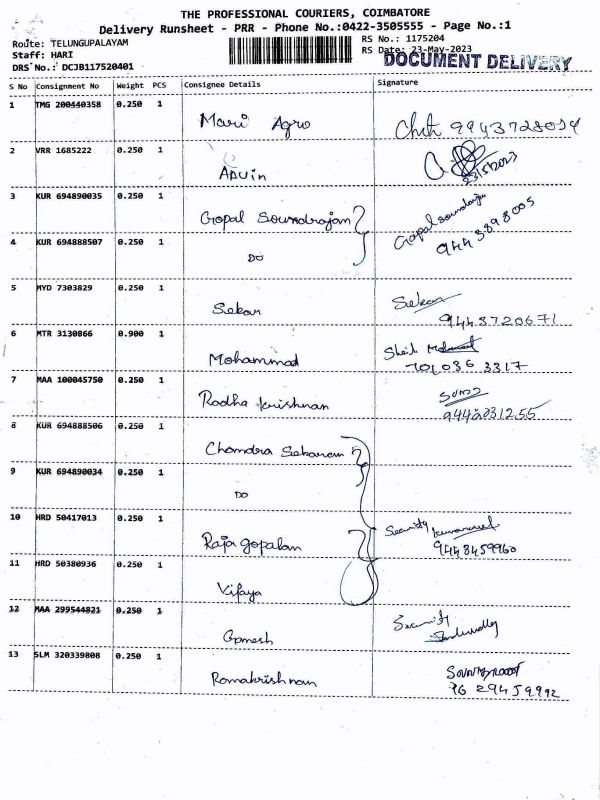 THE PROFESSIONAL COURIERS, COIMBATORE
Delivery Runsheet - PRR - Phone No.:0422-3505555 - Page No.:1
Route: TELUNGUPALAYAM RS No.: 1175204
Staff: HARI RS Date: 23-May-2023
DRS No.: DCJB117520401 DOCUMENT DELIVERY
S No Consignment No Weight PCS Consignee Details Signature
1 TMG 200440358 0.250 1
Mari Agro 9943728054
2 VRR 1685222 0.250 1
Arvin 23/5/2023
3 KUR 694890035 0.250 1
Gopal Soundrajam Gopal soundaraj
4 KUR 694888507 0.250 1 9443898005
DO
5 MYD 7303829 0.250 1
Sekar Sekar
9448720671
6 MTR 3130866 0.900 1
Mohammad Sheik
7010863317
7 MAA 100045750 0.250 1
Radha krishnan
9442031255
8 KUR 694888506 0.250 1
Chandra Sekaram
9 KUR 694890034 0.250 1
DO
10 HRD 50417013 0.250 1
Raja gopalan Security
9448459960
11 HRD 50380936 0.250 1
Vijaya
12 MAA 299544821 0.250 1
Ganesh Security
13 SLM 320339808 0.250 1
Ramakrishnan